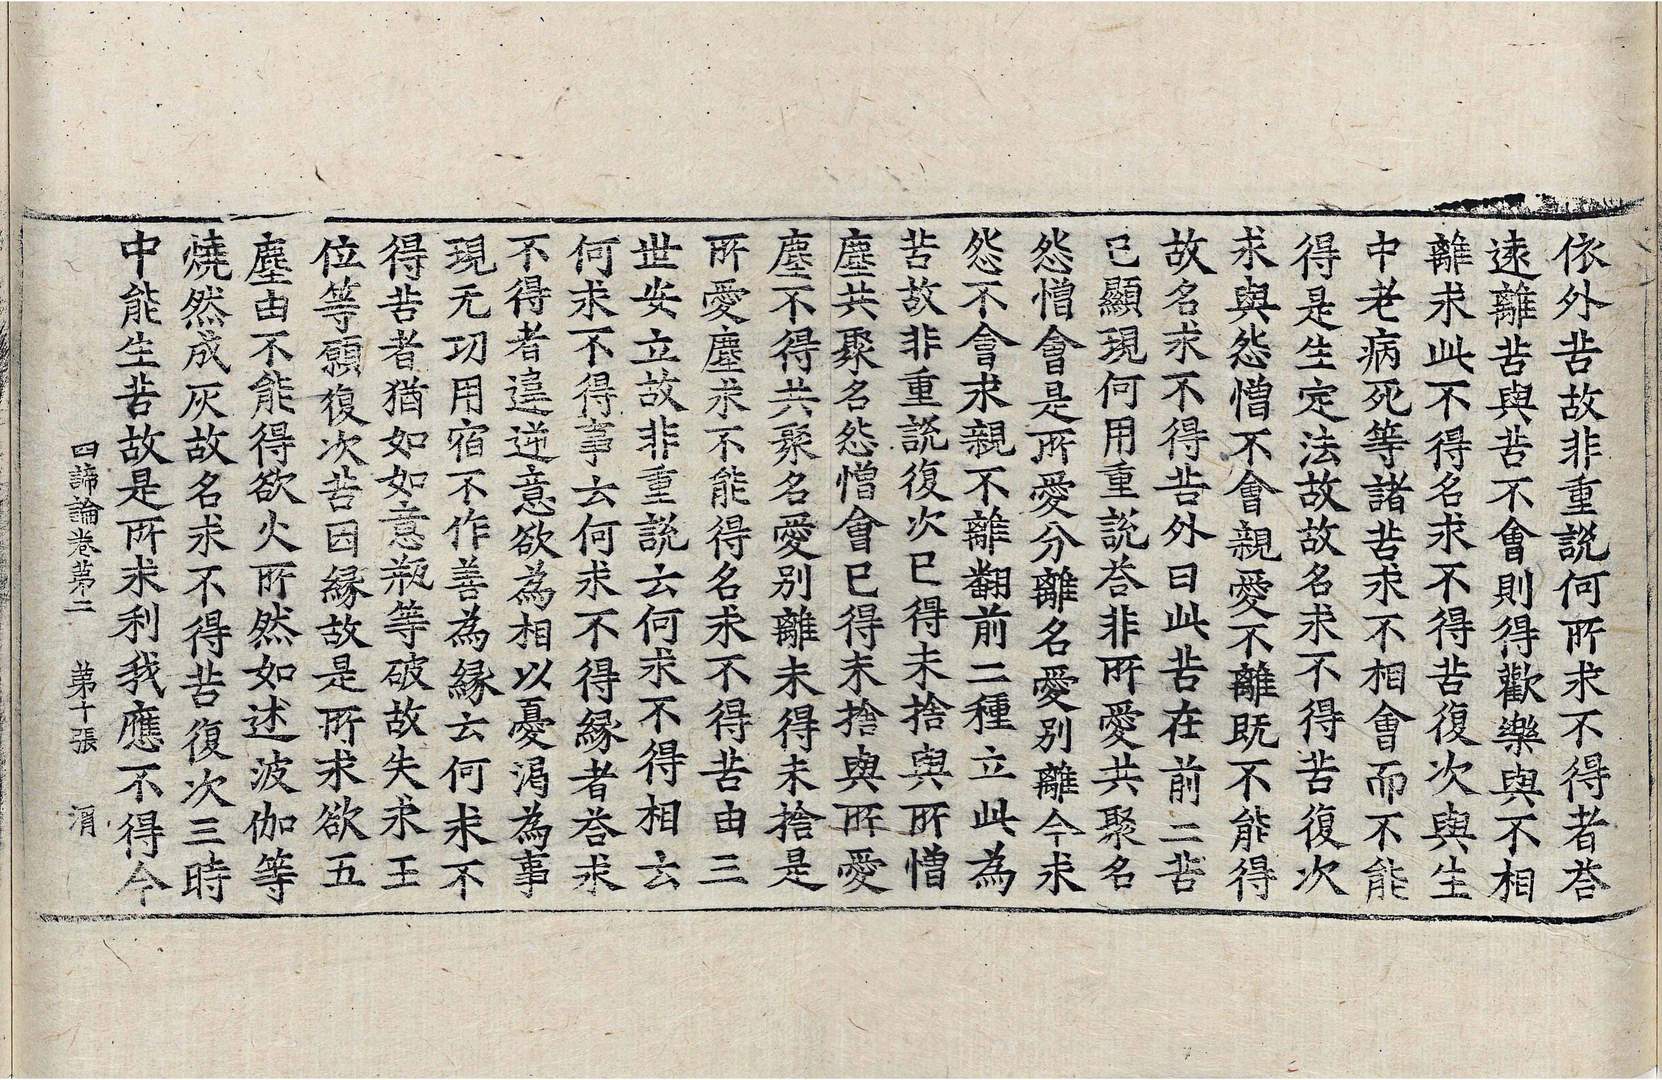 依外苦故非重説何所求不得者荅
遠離苦與苦不會則得歡樂與不相
離求此不得名求不得苦復次與生
中老病死等諸苦求不相會而不能
得是生定法故故名求不得苦復次
求與怨憎不會親愛不離既不能得
故名求不得苦外曰此苦在前二苦
已顯現何用重説荅非所愛共聚名
怨憎會是所愛分離名愛別離今求
怨不會求親不離翻前二種立此為
苦故非重説復次已得未捨與所憎
塵共聚名怨憎會已得未捨與所愛
塵不得共聚名愛別離未得未捨是
所愛塵求不能得名求不得苦由三
世安立故非重説云何求不得相云
何求不得事云何求不得縁者荅求
不得者違逆意欲為相以憂渴為事
現无功用宿不作善為縁云何求不
得苦者猶如如意瓶等破故失求王
位等願復次苦因縁故是所求欲五
塵由不能得欲火所然如述波伽等
燒然成灰故名求不得苦復次三時
中能生苦故是所求利我應不得今
四諦論卷苐二　苐十張　渭